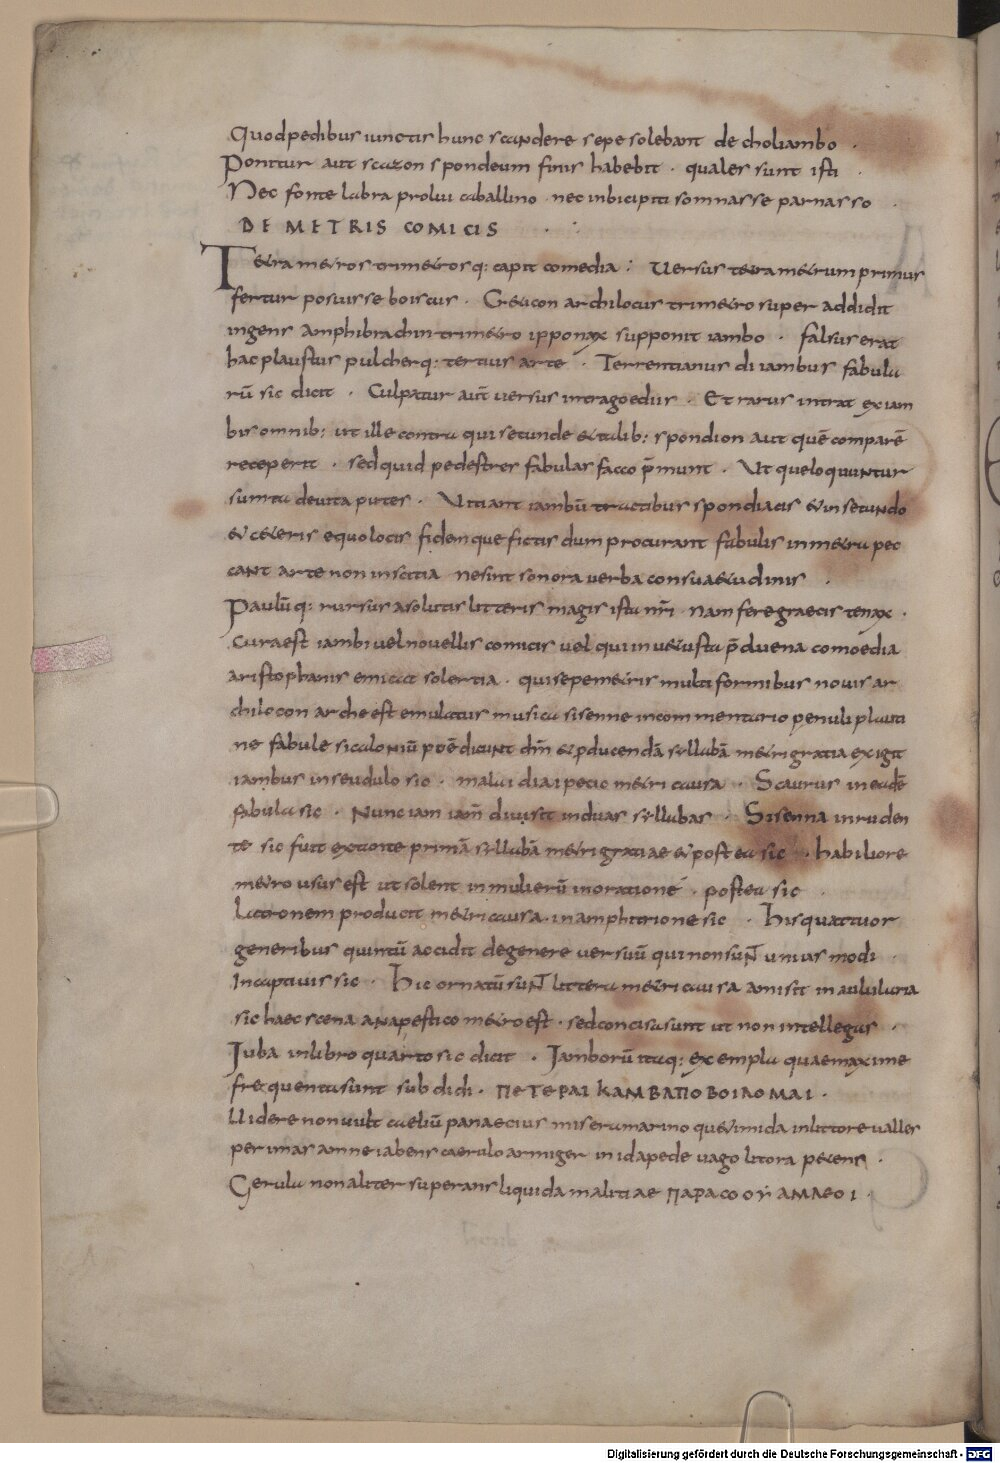 Quod pedibus iunctis hunc scandere sepe solebant de choliambo .
Ponitur aut scazon spondeum finis habebit . quales sunt isti .
Nec fonte labra prolui caballino . nec inbicipiti somnasse parnasso .
DE METRIS COMICIS
Tetrametros trimetrosq: capit comedia : Uersus tetrametrum primus
fertur posuisse boiscus . Geticon archilocus trimetro super addidit
ingens Amphibrachin trimetro ipponax supponit iambo . falsus erat
hac plaustus pulcherq: tertius arte . Terrentianus di iambus fabula
rū sic dicit . Culpatur aut̄ uersus intragoediis . Et rarus intrat ex iam
bis omnib: ut ille contra qui secunde & talib: spondion aut quē comparē
receperit . sed quid pedestres fabulas facco p̄munt . Ut que loquuntur
sumta deuita putes . Uitiant iambū tractibus spondiacis & in secundo
& c&eris equo locis fidemque fictis dum procurant fabulis in m&ra pec
cant arte non inscitia ne sint sonora uerba consu&udinis .
Paulūq: rursus asolitis litteris magis ista nr̄i nam fere graecis tenax .
cura est iambi uel nouellis comicis uel qui in u&usta p̄duena comoedia
aristophanis emicat solertia . qui sepe m&ris multiformibus nouis ar
chilocon arche est emulatus musica sisenne incommentario penuli plauti
ne fabule sic alonium poē dicunt dm̄ & pducendā syllabā m&ri gratia exigit
iambus inseudulo sic . malui diai petic m&ri causa . Scaurus in eadē
fabula sic . Nunc iam iam̄ diuisit in duas syllabas . Sisenna in ruden
te sic fuit extonte primā syllabā m&ri gratiae & postea sic . habiliore
m&ro usus est ut solent in mulierū in oratione . postea sic .
Litronem producit m&ri causa . in amphitrione sic . His quattuor
generibus quintū accidit de genere uersuū qui non sunt unius modi .
Incaptiuis sic . Hic ornatū sunt littera m&ri causa amisit in aulularia
sic haec scena anapestico m&ro est . sed concisa sunt ut non intellegas .
Iuba in libro quarto sic dicit . Iamborū itaq: exempla quae maxime
frequenta sunt subdidi . ΠΕΤΕΡΑΙ ΚΑΜΒΑΠΟΒΟΙΛΟΜΑΙ .
Uidere non uult caeliū panaecius miseram arino qu&imida in littore ualles
per imas amne iabens caerulo armiger in ida pede uago litora p&ens .
Gerula non aliter superans liquida malitiae ΠΑΡΑCΟΟΥ ΑΜΛΕΟΙ .
Digitalisierung gefördert durch die Deutsche Forschungsgemeinschaft - DFG